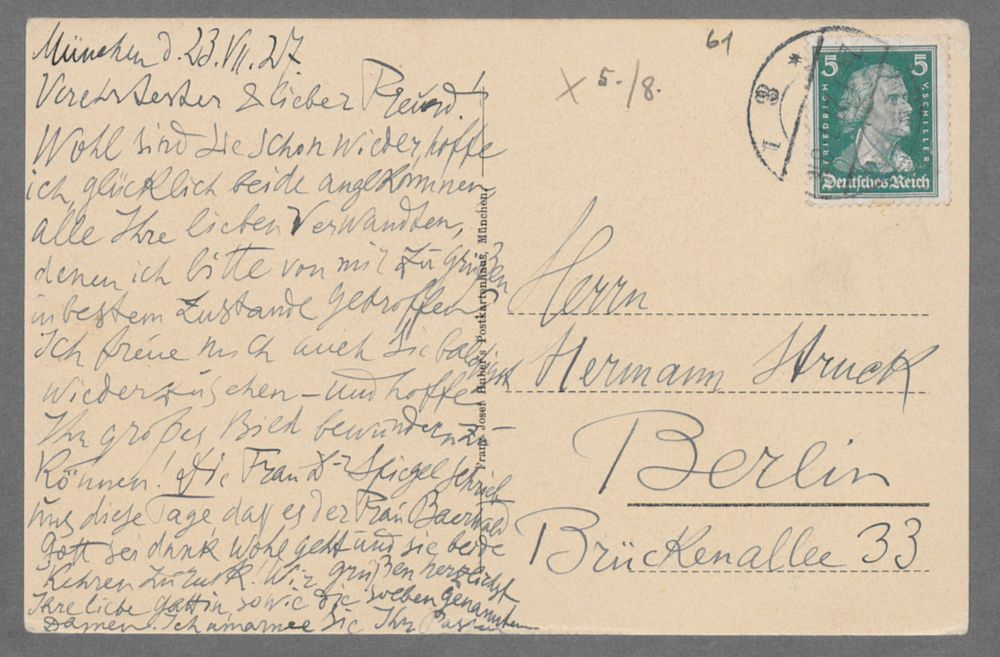 München d. 23. VII. 27.
Verehrtester & lieber Freund!
Wohl sind Sie schon wieder, hoffe
ich, glücklich beide angekommen,
alle Ihre lieben Verwandten,
denen ich bitte von mir zu grüßen
in bestem Zustande getroffen.
Ich freue mich auch Sie baldigst
wiederzusehen – und hoffe
Ihr großes Bild bewundern zu
können! Die Frau Dr Spiegel schrieb
uns diese Tage daß es der Frau Baerwald
Gott sei dank wohl geht und sie beide
kehren zurück! Wir grüßen herzlichst
Ihre liebe Gattin sowie die soeben genannten
Damen. Ich umarme Sie Ihr
Franz Josef Huber's Postkartenhaus, München.
61
X 5./8.
1 8 *
5 5
FRIEDRICH V. SCHILLER
Deutsches Reich
Herrn
Hermann Struck
Berlin
Brückenallee 33